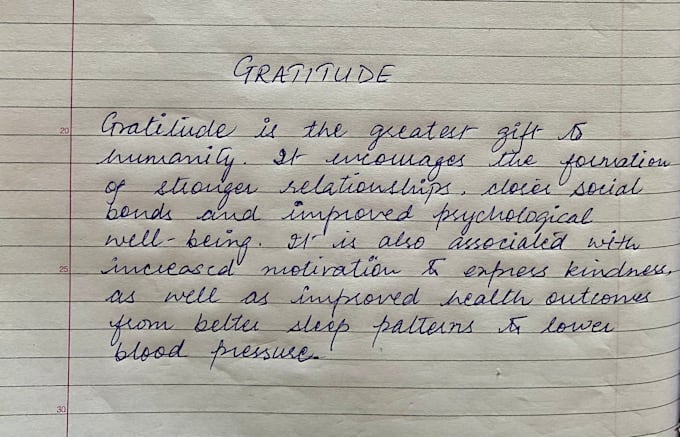 GRATITUDE
20
Gratitude is the greatest gift to
humanity. It encourages the formation
of stronger relationships, closer social
bonds and improved psychological
well-being. It is also associated with
25
increased motivation to express kindness,
as well as improved health outcomes
from better sleep patterns to lower
blood pressure.
30